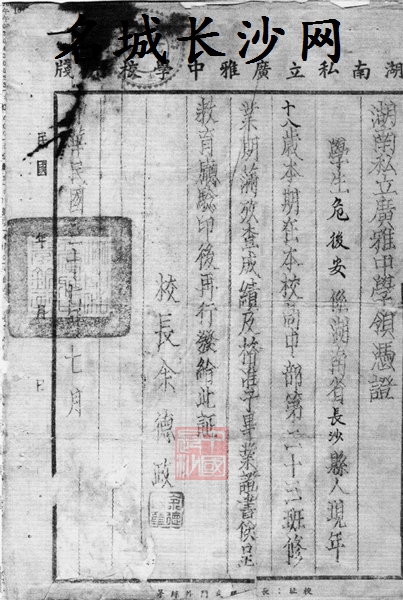 名城长沙网
湖南私立廣雅中學校牋
湖南私立廣雅中學領憑證
學生危後安係湖南省長沙縣人現年
十八歲本期在本校高中部第二十三班修
業期滿攷查成績及格准予畢業證書俟呈
教育廳驗印後再行發給此証
校長余德政
中華民國三十 七月
民國 年 月 日